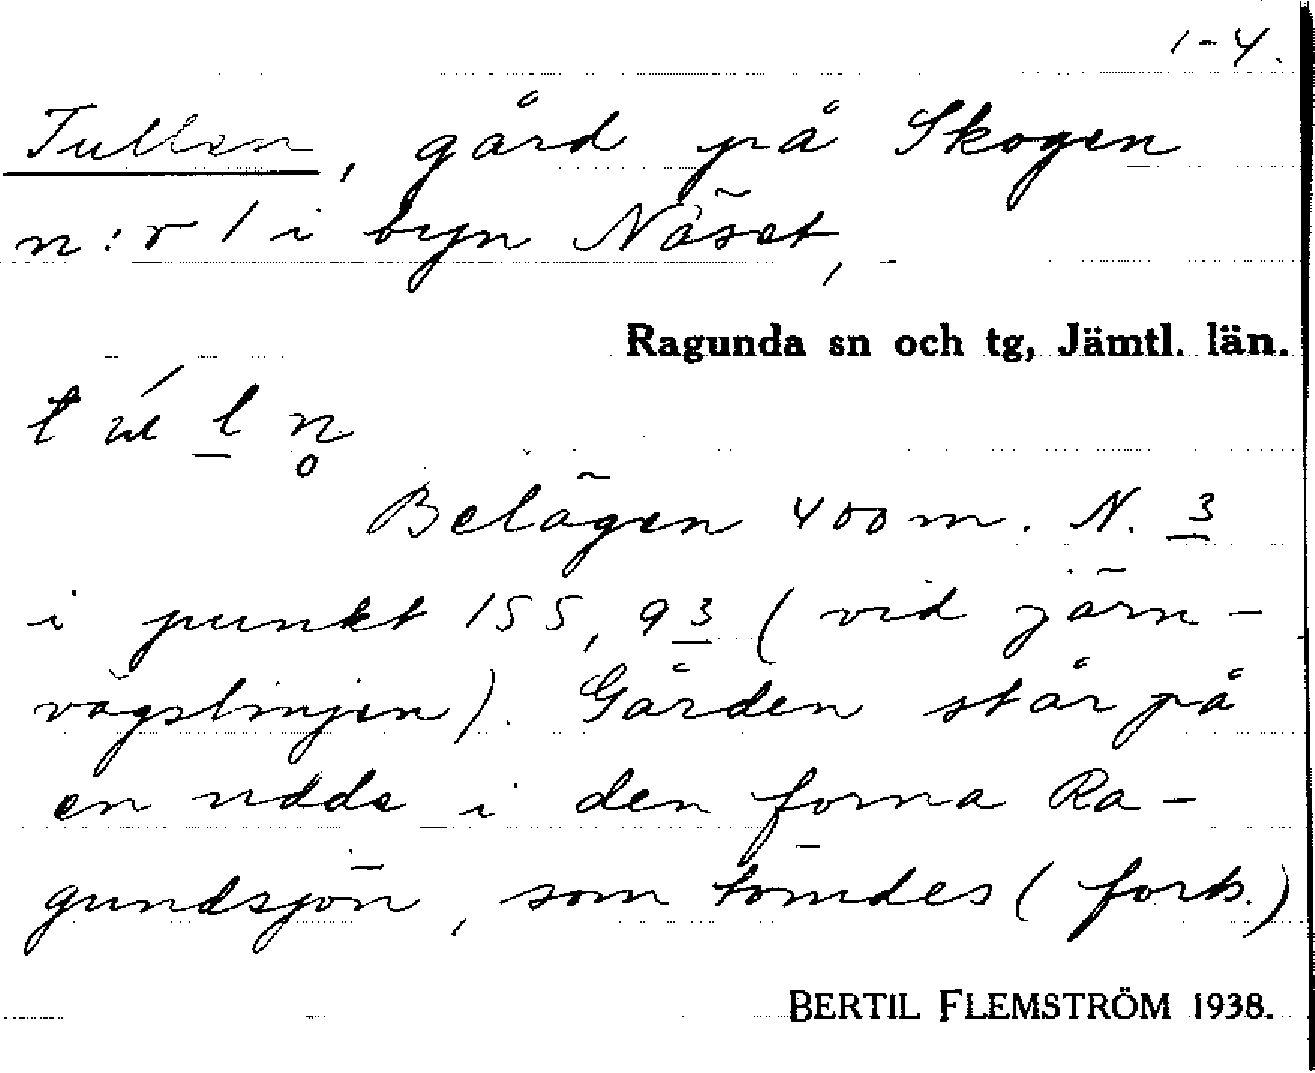 1-4.
Tullen, gård på Skogen
n:r 1 i byn Näset,
Ragunda sn och tg, Jämtl. län.
Belägen 400 m. N. 3
i punkt 155,93 (vid järn-
vägslinjen). Gården står på
en udde i den forna Ra-
gundsjön, som tömdes (forts.)
BERTIL FLEMSTRÖM 1938.